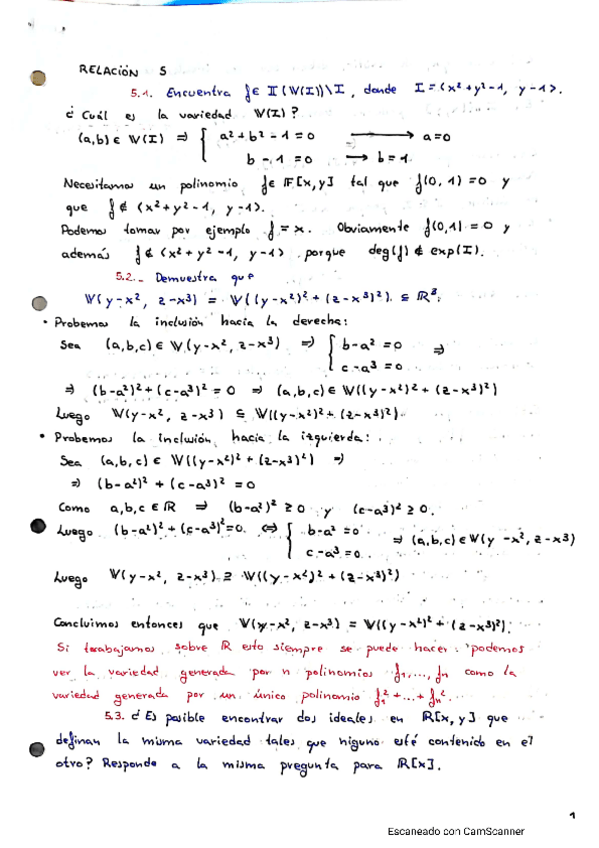 RELACIÓN 5
5.1. Encuentra f ∈ 𝕀(𝕍(I))\I, donde I = <x²+y²-1, y-1>.
¿Cuál es la variedad 𝕍(I)?
(a,b) ∈ 𝕍(I) ⇒ { a²+b²-1=0 ⟶ a=0
b-1=0 → b=1
Necesitamos un polinomio f ∈ 𝔽[x,y] tal que f(0,1)=0 y
que f ∉ <x²+y²-1, y-1>.
Podemos tomar por ejemplo f = x. Obviamente f(0,1)=0 y
además f ∉ <x²+y²-1, y-1> porque deg(f) ∉ exp(I).
5.2.- Demuestra que
𝕍(y-x², z-x³) = 𝕍((y-x²)²+(z-x³)²) ⊆ ℝ³.
• Probemos la inclusión hacia la derecha:
Sea (a,b,c) ∈ 𝕍(y-x², z-x³) ⇒ { b-a²=0 ⇒
c-a³=0
⇒ (b-a²)²+(c-a³)²=0 ⇒ (a,b,c) ∈ 𝕍((y-x²)²+(z-x³)²)
Luego 𝕍(y-x², z-x³) ⊆ 𝕍((y-x²)²+(z-x³)²).
• Probemos la inclusión hacia la izquierda:
Sea (a,b,c) ∈ 𝕍((y-x²)²+(z-x³)²) ⇒
⇒ (b-a²)²+(c-a³)²=0
Como a,b,c ∈ ℝ ⇒ (b-a²)² ≥ 0 y (c-a³)² ≥ 0.
Luego (b-a²)²+(c-a³)²=0. ⇔ { b-a²=0 ⇒ (a,b,c) ∈ 𝕍(y-x², z-x³)
c-a³=0
Luego 𝕍(y-x², z-x³) ⊇ 𝕍((y-x²)²+(z-x³)²)
Concluimos entonces que 𝕍(y-x², z-x³) = 𝕍((y-x²)²+(z-x³)²).
Si trabajamos sobre ℝ esto siempre se puede hacer: podemos
ver la variedad generada por n polinomios f₁,..., fn como la
variedad generada por un único polinomio f₁²+...+fn².
5.3. ¿Es posible encontrar dos ideales en ℝ[x,y] que
definan la misma variedad tales que niguno esté contenido en el
otro? Responde a la misma pregunta para ℝ[x].
1
Escaneado con CamScanner